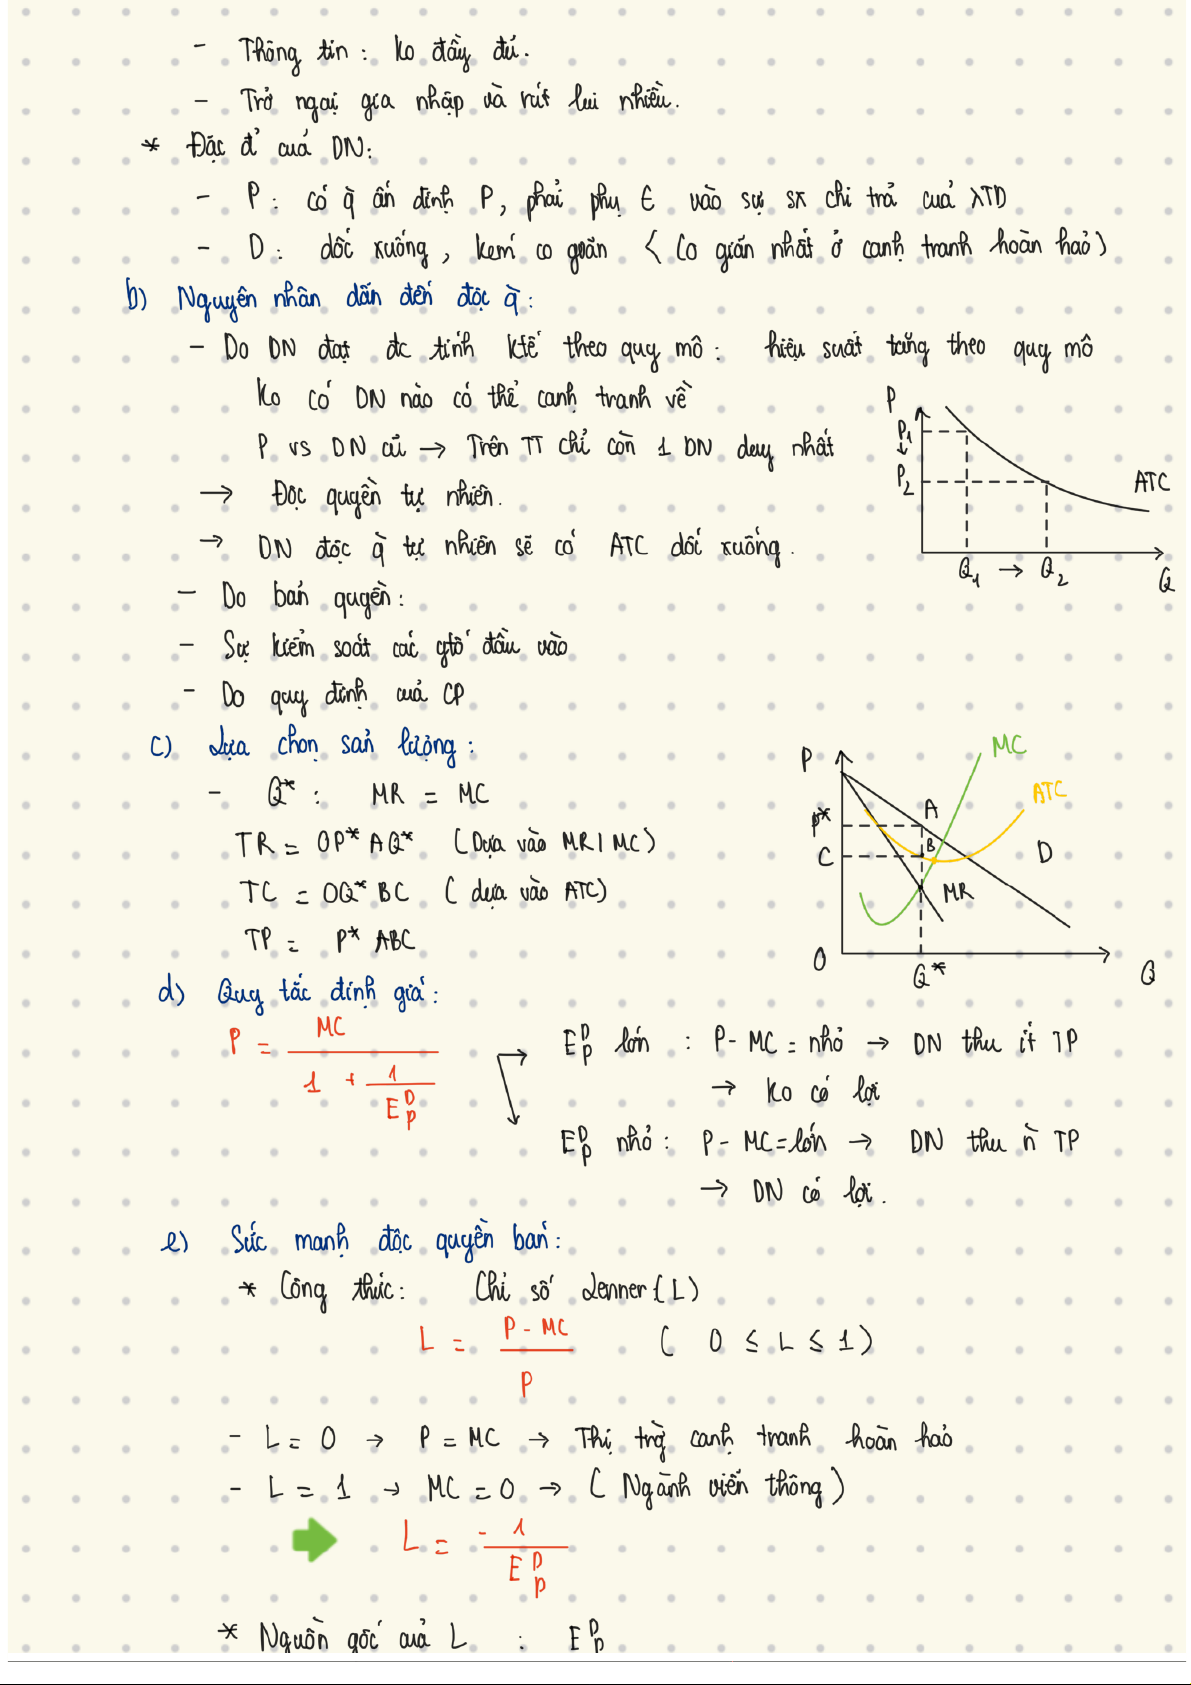 - Thông tin : ko đầy đủ.
- Trở ngại gia nhập và rút lui nhiều.
* Đặc đ' của DN:
- P : có q̀ ấn định P, phải phụ E vào sự sx chi trả của λTD
- D : dốc xuống, kém co giãn < Co giãn nhất ở cạnh tranh hoàn hảo)
b) Nguyên nhân dẫn đến độc q̀ :
- Do DN đạt đc tính ktế theo quy mô : hiệu suất tăng theo quy mô
ko có DN nào có thể cạnh tranh về
P vs DN cũ → Trên TT chỉ còn 1 DN duy nhất
→ Độc quyền tự nhiên.
→ DN độc q̀ tự nhiên sẽ có ATC dốc xuống.
P
P1
↓
P2
ATC
Q1 → Q2
Q
- Do bản quyền :
- Sự kiểm soát các ytố đầu vào
- Do quy định của CP
c) Lựa chọn sản lượng :
- Q* : MR = MC
TR = OP*AQ* (Dựa vào MR1MC)
TC = OQ*BC ( dựa vào ATC)
TP = P*ABC
P
MC
ATC
P*
A
C
B
D
MR
O
Q*
Q
d) Quy tắc định giá :
P = MC / (1 + 1/E^D_P)
E^D_P lớn : P - MC = nhỏ → DN thu ít TP
→ ko có lợi
E^D_P nhỏ : P - MC = lớn → DN thu ǹ TP
→ DN có lợi.
e) Sức mạnh độc quyền bán :
* Công thức : Chỉ số Lenner (L)
L = (P - MC) / P ( 0 ≤ L ≤ 1)
- L = 0 → P = MC → Thị trg̀ cạnh tranh hoàn hảo
- L = 1 → MC = 0 → ( Ngành viễn thông)
L = - 1 / E^D_P
* Nguồn gốc của L : E^D_P